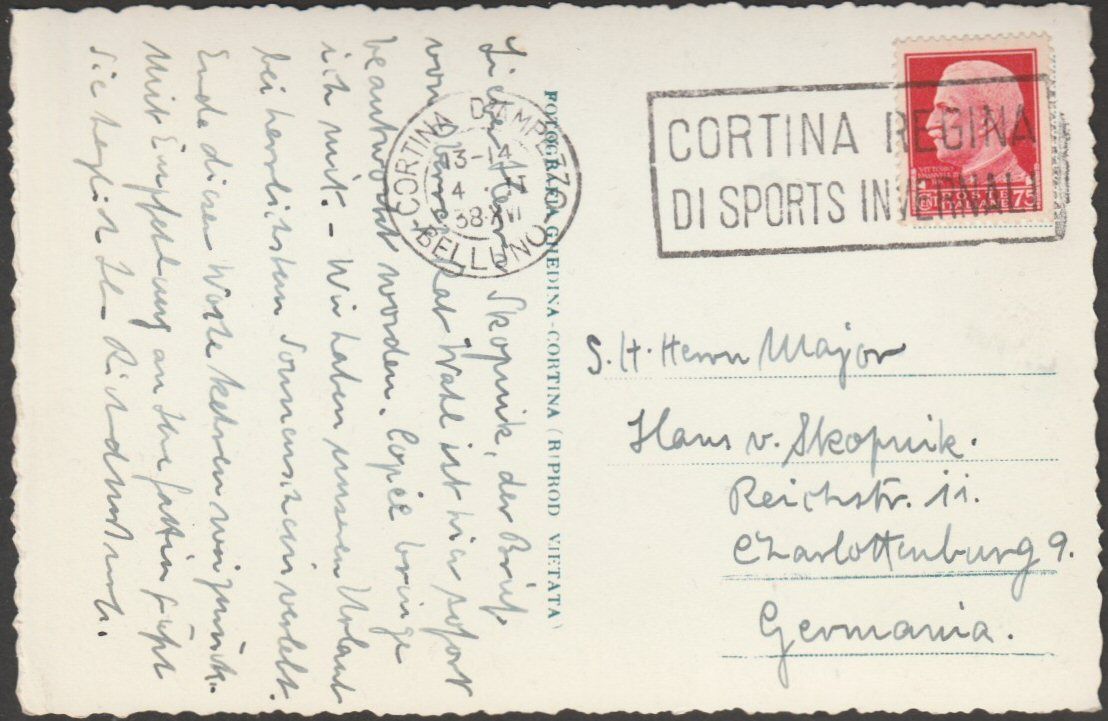 Lieber Herr Skopnik, der Brief
von Obmer. Rat Wahl ist hier sofort
beantwortet worden. Copie bringe
ich mit. – Wir haben unseren Urlaub
bei herrlichstem Sonnenschein verlebt.
Ende dieser Woche kehren wir zurück.
Mit Empfehlung an Ihre Gattin grüßt
Sie herzlich Ihr
FOTOGRAFIA GHEDINA-CORTINA (RIPROD VIETATA)
CORTINA D'AMPEZZO
13-14
4 II
38·XVI
BELLUNO
CORTINA REGINA
DI SPORTS INVERNALI
POSTE
ITALIANE
75
S. H. Herrn Major
Hans v. Skopnik.
Reichstr. 11.
Charlottenburg 9.
Germania.